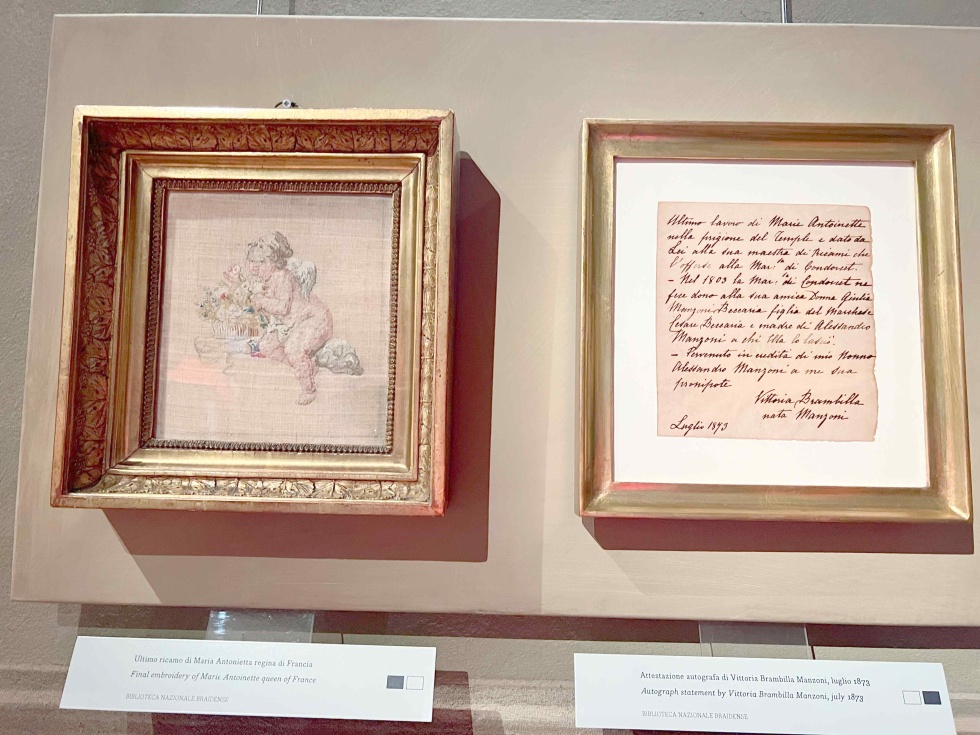 Ultimo lavoro di Marie Antoinette
nella prigione del Temple e dato da
Lei alla sua maestra di Ricami che
l'offerse alla Mar:sa di Condorcet.
– Nel 1803 la Mar:sa di Condorcet ne
fece dono alla sua amica Donna Giulia
Manzoni Beccaria figlia del Marchese
Cesare Beccaria e madre di Alessandro
Manzoni a chi Ella lo lasciò.
– Pervenuto in eredità di mio Nonno
Alessandro Manzoni a me sua
pronipote
Vittoria Brambilla
nata Manzoni
Luglio 1873
Ultimo ricamo di Maria Antonietta regina di Francia
Final embroidery of Marie Antoinette queen of France
BIBLIOTECA NAZIONALE BRAIDENSE
Attestazione autografa di Vittoria Brambilla Manzoni, luglio 1873
Autograph statement by Vittoria Brambilla Manzoni, july 1873
BIBLIOTECA NAZIONALE BRAIDENSE